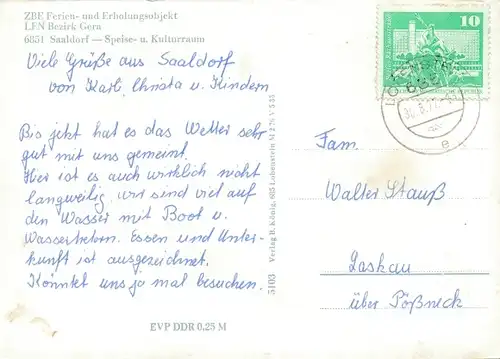 ZBE Ferien- und Erholungsobjekt
LFN Bezirk Gera
6851 Saaldorf — Speise- u. Kulturraum
10
Viele Grüße aus Saaldorf
von Karli, Christa u. Kindern
Bis jetzt hat es das Wetter sehr
gut mit uns gemeint.
Hier ist es auch wirklich nicht
langweilig, wir sind viel auf
den Wasser mit Boot u.
Wassertretern. Essen und Unter-
kunft ist ausgezeichnet.
Könntet uns ja mal besuchen.
5103 Verlag B. König, 685 Lobenstein M 2 78 V 5 35
EVP DDR 0,25 M
Fam.
Walter Stauß
Laskau
über Pößneck